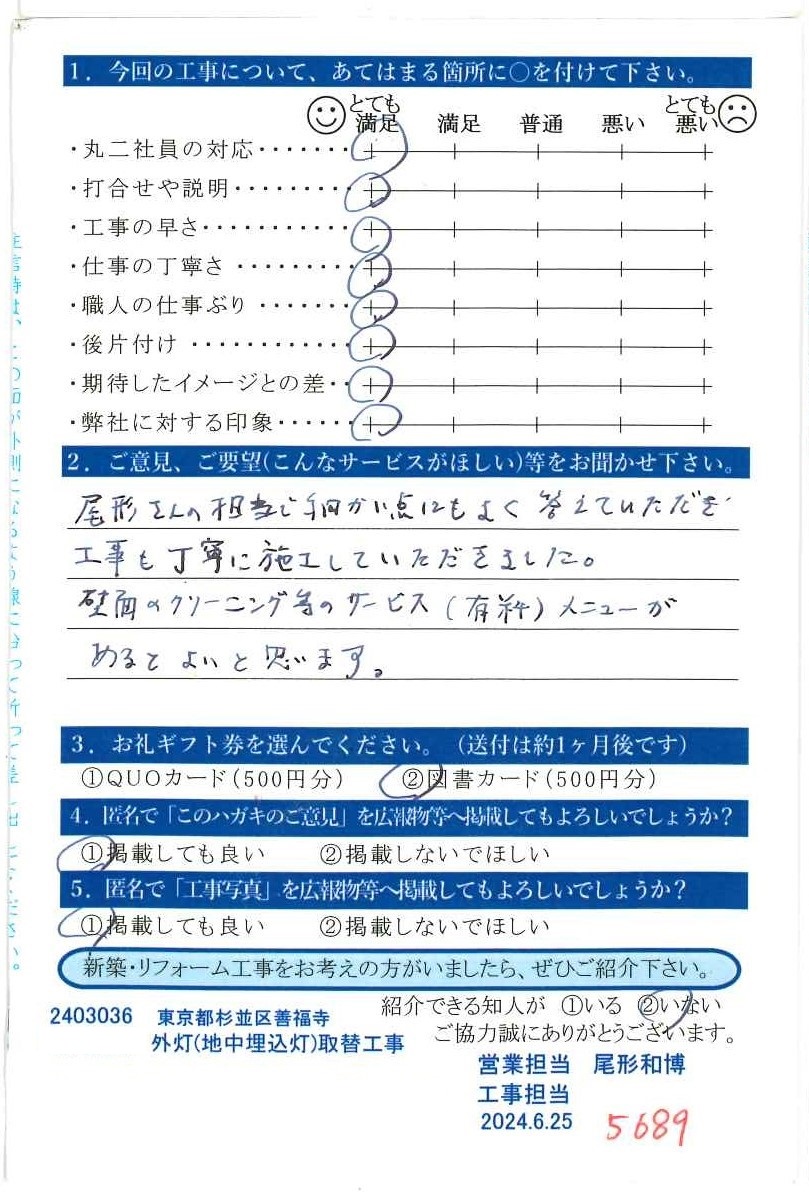 1．今回の工事について、あてはまる箇所に○を付けて下さい。
とても満足 満足 普通 悪い とても悪い
・丸二社員の対応・・・・・・・
・打合せや説明・・・・・・・・・
・工事の早さ・・・・・・・・・・・
・仕事の丁寧さ・・・・・・・・・
・職人の仕事ぶり・・・・・・・
・後片付け・・・・・・・・・・・・
・期待したイメージとの差・・
・弊社に対する印象・・・・・・
2．ご意見、ご要望(こんなサービスがほしい)等をお聞かせ下さい。
尾形さんの担当で細かい点にもよく答えていただき
工事も丁寧に施工していただきました。
壁面のクリーニング等のサービス(有料)メニューが
あるとよいと思います。
3．お礼ギフト券を選んでください。（送付は約1ヶ月後です）
①QUOカード(500円分) ②図書カード(500円分)
4．匿名で「このハガキのご意見」を広報物等へ掲載してもよろしいでしょうか？
①掲載しても良い ②掲載しないでほしい
5．匿名で「工事写真」を広報物等へ掲載してもよろしいでしょうか？
①掲載しても良い ②掲載しないでほしい
新築・リフォーム工事をお考えの方がいましたら、ぜひご紹介下さい。
紹介できる知人が ①いる ②いない
ご協力誠にありがとうございます。
2403036 東京都杉並区善福寺
外灯(地中埋込灯)取替工事
営業担当 尾形和博
工事担当
2024.6.25
5689